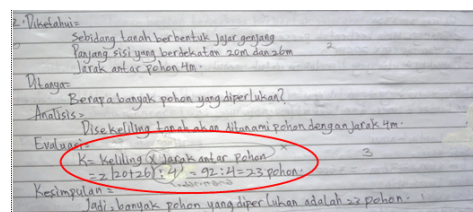 2. Diketahui =
Sebidang tanah berbentuk jajar genjang
Panjang sisi yang berdekatan 20m dan 26m
2
Jarak antar pohon 4m.
Ditanya =
Berapa banyak pohon yang diperlukan?
Analisis =
Disekeliling tanah akan ditanami pohon dengan jarak 4m.
Evaluasi =
K = Keliling x Jarak antar pohon x
3
= 2(20+26) : 4 = 92 : 4 = 23 pohon.
Kesimpulan =
Jadi, banyak pohon yang diperlukan adalah 23 pohon.